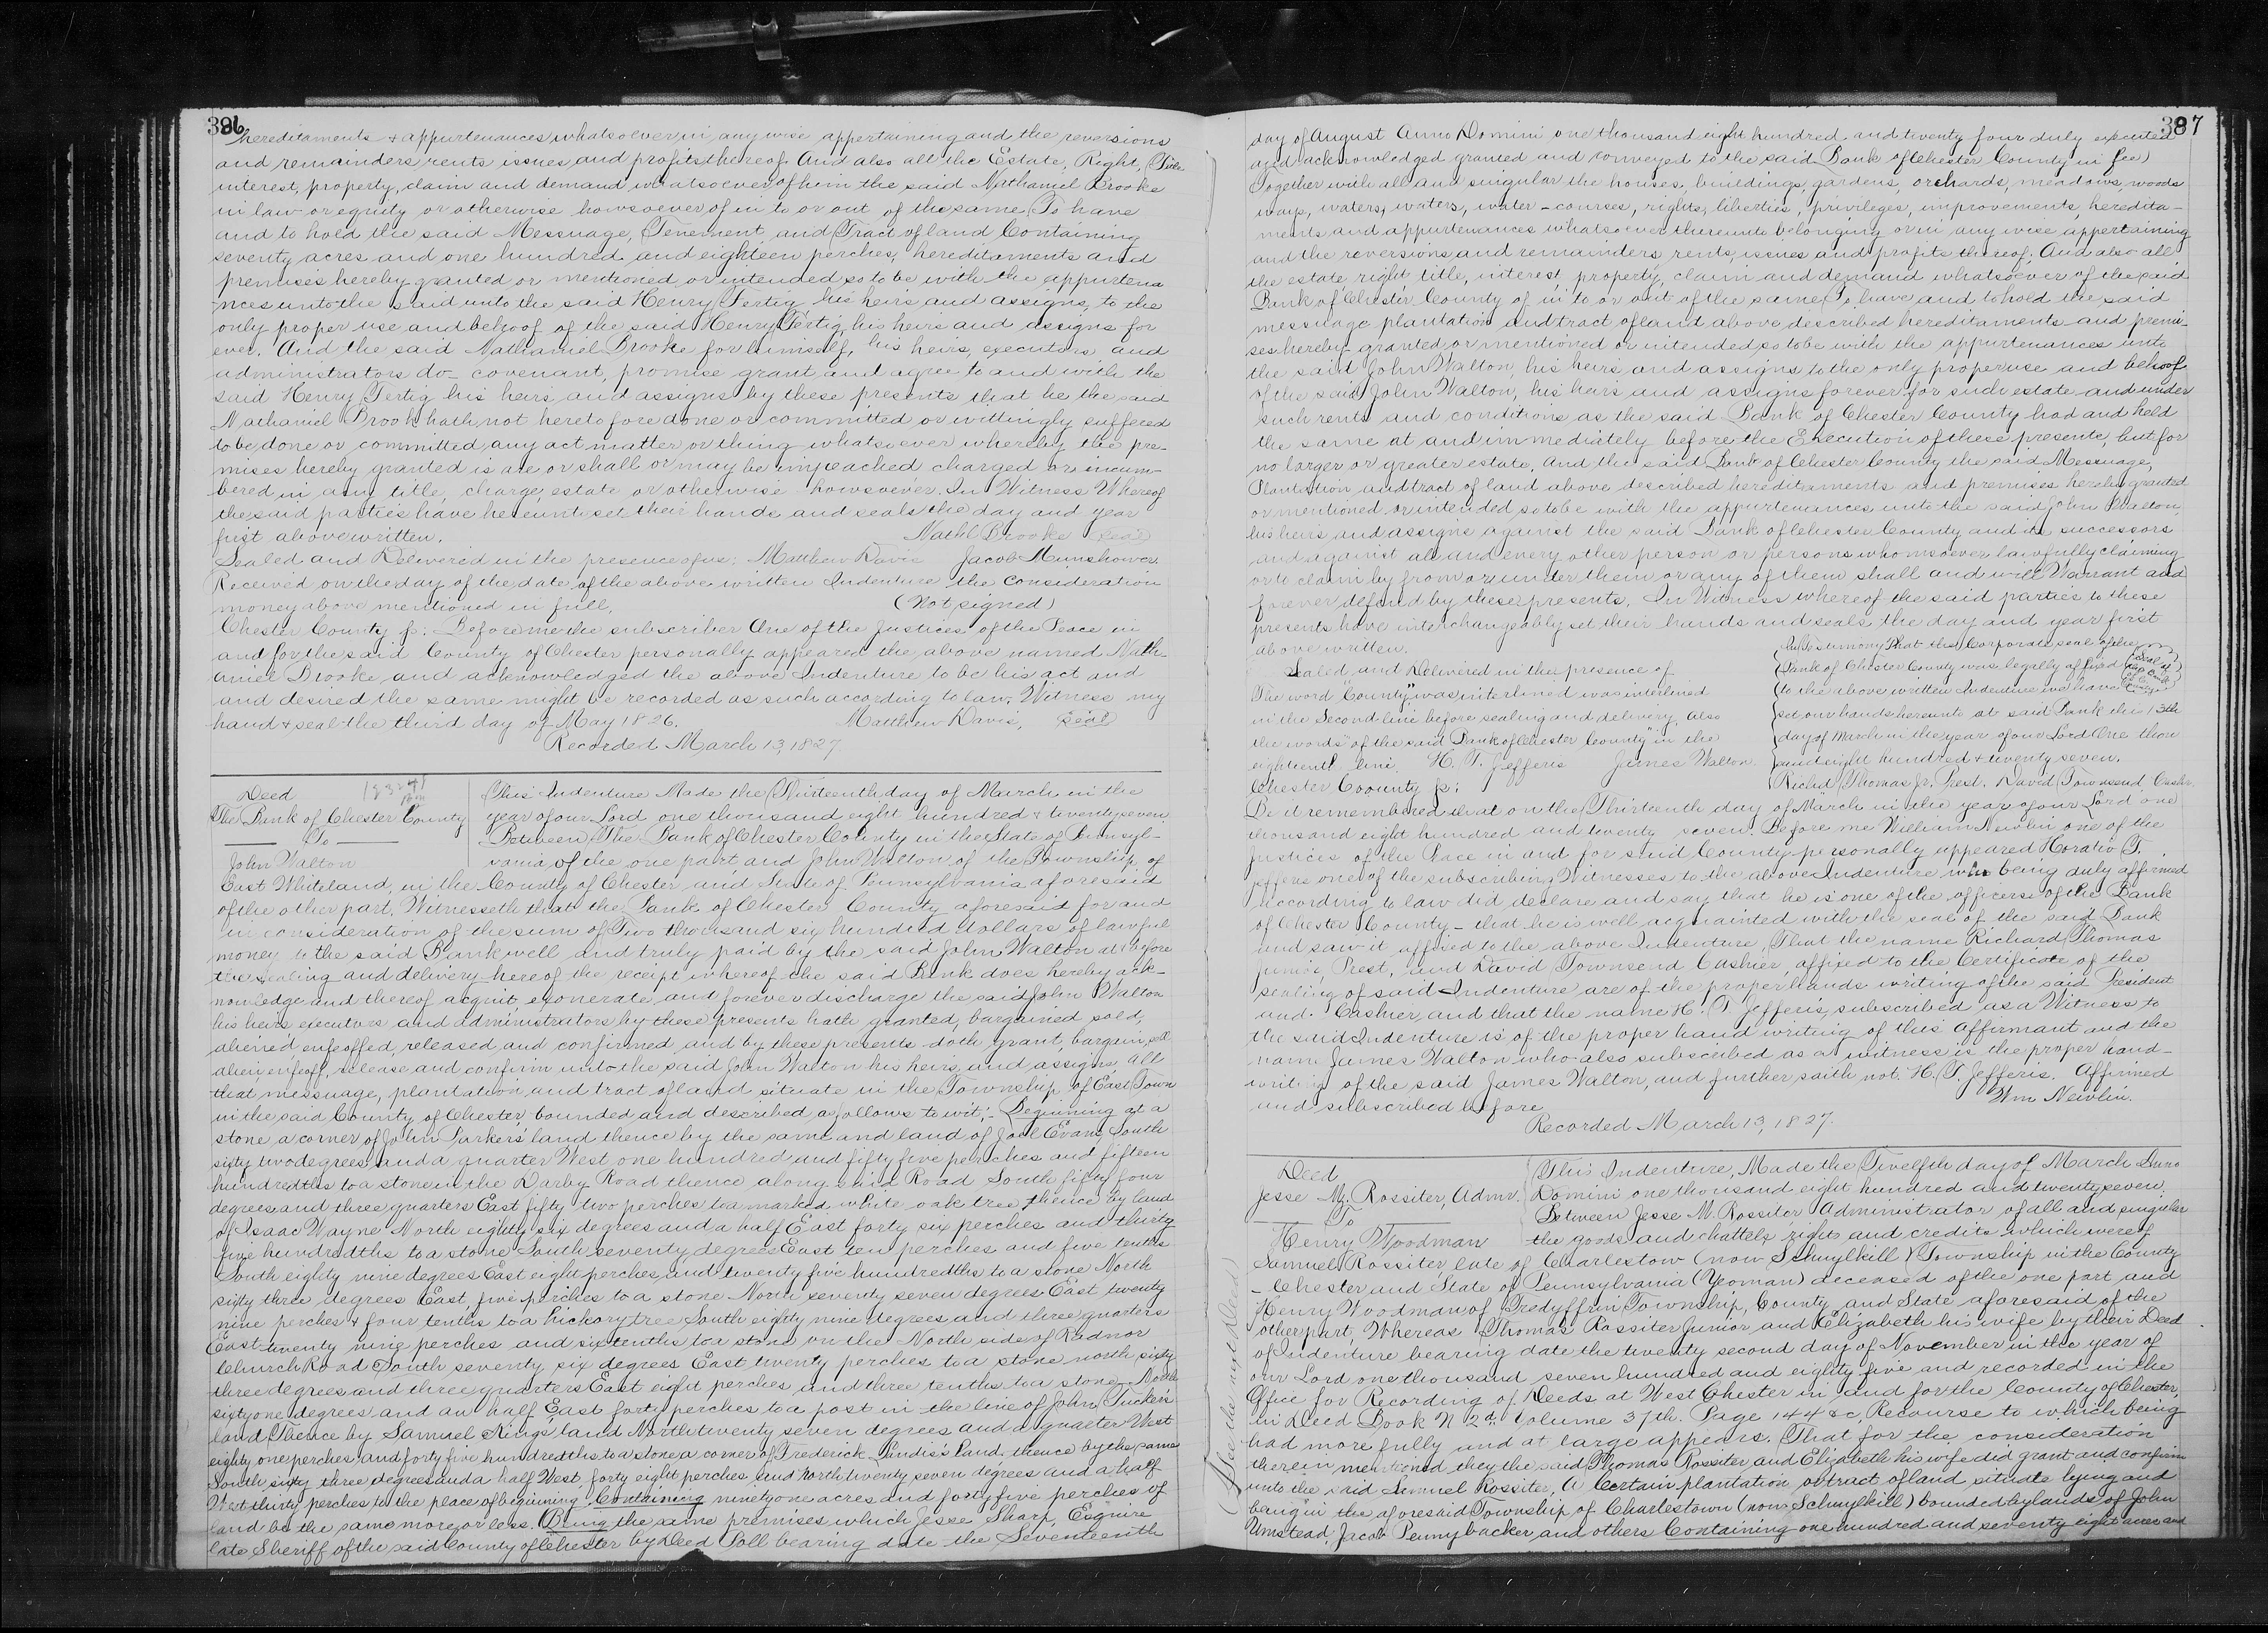 386
hereditaments & appurtenances whatsoever in any wise appertaining and the reversions
and remainders rents issues and profits thereof. And also all the Estate, Right, Title
interest, property, claim and demand whatsoever of him the said Nathaniel Brooke
in law or equity or otherwise howsoever of in to or out of the same, To have
and to hold the said Messuage, Tenement, and Tract of land Containing
seventy acres and one hundred and eighteen perches, hereditaments and
premises hereby granted or mentioned or intended so to be with the appurtena
nces unto the said unto the said Henry Fertig his heirs and assigns, to the
only proper use and behoof of the said Henry Fertig his heirs and assigns for
ever. And the said Nathaniel Brooke for himself, his heirs, executors and
administrators do covenant, promise grant and agree to and with the
said Henry Fertig his heirs and assigns by these presents that he the said
Nathaniel Brook hath not heretofore done or committed or wittingly suffered
to be done or committed any act matter or thing whatsoever whereby the pre-
mises hereby granted is are or shall or may be impeached charged or incum-
bered in any title, charge, estate or otherwise howsoever. In Witness Whereof
the said parties have hereunto set their hands and seals the day and year
first above written. Nathl Brooke Seal
Sealed and Delivered in the presence of us: Matthew Davis Jacob Munshower
Received on the day of the date of the above written Indenture the consideration
money above mentioned in full. (Not signed)
Chester County ss: Before me the subscriber One of the Justices of the Peace in
and for the said County of Chester personally appeared the above named Nath-
aniel Brooke and acknowledged the above Indenture to be his act and
and desired the same might be recorded as such according to law. Witness my
hand & seal the third day of May 1826. Matthew Davis, Seal
Recorded March 13, 1827.
Deed
The Bank of Chester County
To
John Walton
This Indenture Made the Thirteenth day of March in the
year of our Lord one thousand eight hundred & twenty seven
Between The Bank of Chester County in the State of Pennsyl-
vania of the one part and John Walton of the Township of
East Whiteland, in the County of Chester and State of Pennsylvania aforesaid
of the other part. Witnesseth that the Bank of Chester County aforesaid for and
in consideration of the sum of Two thousand six hundred dollars of lawful
money to the said Bank well and truly paid by the said John Walton at before
the sealing and delivery hereof the receipt whereof the said Bank does hereby ack-
nowledge and thereof acquit exonerate and forever discharge the said John Walton
his heirs executors and administrators by these presents hath granted, bargained sold,
aliened, enfeoffed, released and confirmed and by these presents doth grant, bargain, sell
alien, enfeoff, release and confirm unto the said John Walton his heirs and assigns, All
that messuage, plantation and tract of land situate in the Township of East Town
in the said County of Chester, bounded and described as follows to wit:- Beginning at a
stone a corner of John Parkers' land thence by the same and land of Joel Evans South
sixty two degrees and a quarter West one hundred and fifty five perches and fifteen
hundredths to a stone in the Darby Road thence along said Road South fifty four
degrees and three quarters East fifty two perches to a marked white oak tree, thence by land
of Isaac Wayne North eighty six degrees and a half East forty six perches and thirty
five hundredths to a stone South seventy degrees East ten perches and five tenths
South eighty nine degrees East eight perches and twenty five hundredths to a stone North
sixty three degrees East, five perches to a stone North seventy seven degrees East twenty
nine perches & four tenths to a hickory tree South eighty nine degrees and three quarters
East twenty nine perches and six tenths to a stone on the North side of Radnor
Church Road South seventy six degrees East twenty perches to a stone north sixty
three degrees and three quarters East eight perches and three tenths to a stone North
sixty one degrees and an half East forty perches to a post in the line of John Tucker's
land Thence by Samuel Kings land North twenty seven degrees and a quarter West
eighty one perches and forty five hundredths to a stone a corner of Frederick Landis's Land, thence by the same
South sixty three degrees and a half West forty eight perches and North twenty seven degrees and a half
West thirty perches to the place of beginning Containing ninety one acres and forty five perches of
land be the same more or less. Being the same premises which Jesse Sharp, Esquire
late Sheriff of the said County of Chester by Deed Poll bearing date the Seventeenth
387
day of August Anno Domini one thousand eight hundred and twenty four duly executed
and acknowledged granted and conveyed to the said Bank of Chester County in fee)
Together with all and singular the houses, buildings, gardens, orchards, meadows, woods
ways, waters, waters, water-courses, rights, liberties, privileges, improvements, heredita-
ments and appurtenances whatsoever thereunto belonging or in any wise appertaining
and the reversions and remainders rents, issues and profits thereof. And also all
the estate right title, interest property, claim and demand whatsoever of the said
Bank of Chester County of in to or out of the same To have and to hold the said
messuage plantation and tract of land above described hereditaments and premi-
ses hereby granted or mentioned or intended so to be with the appurtenances unto
the said John Walton, his heirs and assigns to the only proper use and behoof
of the said John Walton, his heirs and assigns forever for such estate and under
such rents and conditions as the said Bank of Chester County had and held
the same at and immediately before the Execution of these presents, but for
no larger or greater estate. And the said Bank of Chester County the said Messuage,
Plantation and tract of land above described hereditaments and premises hereby granted
or mentioned or intended so to be with the appurtenances unto the said John Walton,
his heirs and assigns against the said Bank of Chester County and its successors
and against all and every other person or persons whomsoever lawfully claiming
or to claim by from or under them or any of them shall and will Warrant and
forever defend by these presents. In Witness whereof the said parties to these
presents have interchangeably set their hands and seals the day and year first
above written.
Sealed and Delivered in the presence of
The word "County" was interlined was interlined
in the Second line before sealing and delivery. Also
the words "of the said Bank of Chester County" in the
eighteenth line. H. T. Jefferis James Walton
In Testimony That the Corporate seal of the
Bank of Chester County was legally affixed
to the above written Indenture we have
set our hands hereunto at said Bank this 13th
day of March in the year of our Lord One thou
sand eight hundred & twenty seven.
Richd Thomas Jr. Prest. David Townsend, Cashr.
Chester Coounty ss:
Be it remembered that on the Thirteenth day of March in the year of our Lord one
thousand eight hundred and twenty seven. Before me William Newlin one of the
Justices of the Peace in and for said County personally appeared Horatio T.
Jefferis one of the subscribing Witnesses to the above Indenture who being duly affirmed
according to law did declare and say that he is one of the officers of the Bank
of Chester County - that he is well acquainted with the seal of the said Bank
and saw it affixed to the above Indenture, That the name Richard Thomas
junior, Prest, and David Townsend Cashier, affixed to the Certificate of the
sealing of said Indenture are of the proper hands writing of the said President
and Cashier, and that the name H. T. Jefferis, subscribed as a Witness to
the said Indenture is of the proper hand writing of this affirmant and the
name James Walton who also subscribed as a witness is the proper hand-
writing of the said James Walton, and further saith not. H. T. Jefferis. Affirmed
and subscribed before Wm Newlin.
Recorded March 13, 1827.
Deed
Jesse M. Rossiter, Admr.
To
Henry Woodman
This Indenture, Made the Twelfth day of March Anno
Domini one thousand eight hundred and twenty seven.
Between Jesse M. Rossiter Administrator of all and singular
the goods and chattels rights and credits which were of
Samuel Rossiter, late of Charlestow (now Schuylkill) Township in the County
- Chester and State of Pennsylvania (Yeoman) deceased of the one part and
Henry Woodman of Tredyffrin Township, County and State aforesaid of the
other part, Whereas Thomas Rossiter Junior and Elizabeth his wife by their Deed
of Indenture bearing date the twenty second day of November in the year of
our Lord one thousand seven hundred and eighty five and recorded in the
Office for Recording of Deeds at West Chester in and for the County of Chester,
in Deed Book N 2d Volume 37th. Page 144 &c, Recourse to which being
had more fully and at large appears. That for the consideration
therein mentioned they the said Thomas Rossiter and Elizabeth his wife did grant and confirm
unto the said Samuel Rossiter, A Certain plantation or tract of land situate lying and
being in the aforesaid Township of Charlestown (now Schuylkill) bounded by lands of John
Umstead, Jacob Pennybacker and others Containing one hundred and seventy eight acres and
(See the next Deed)